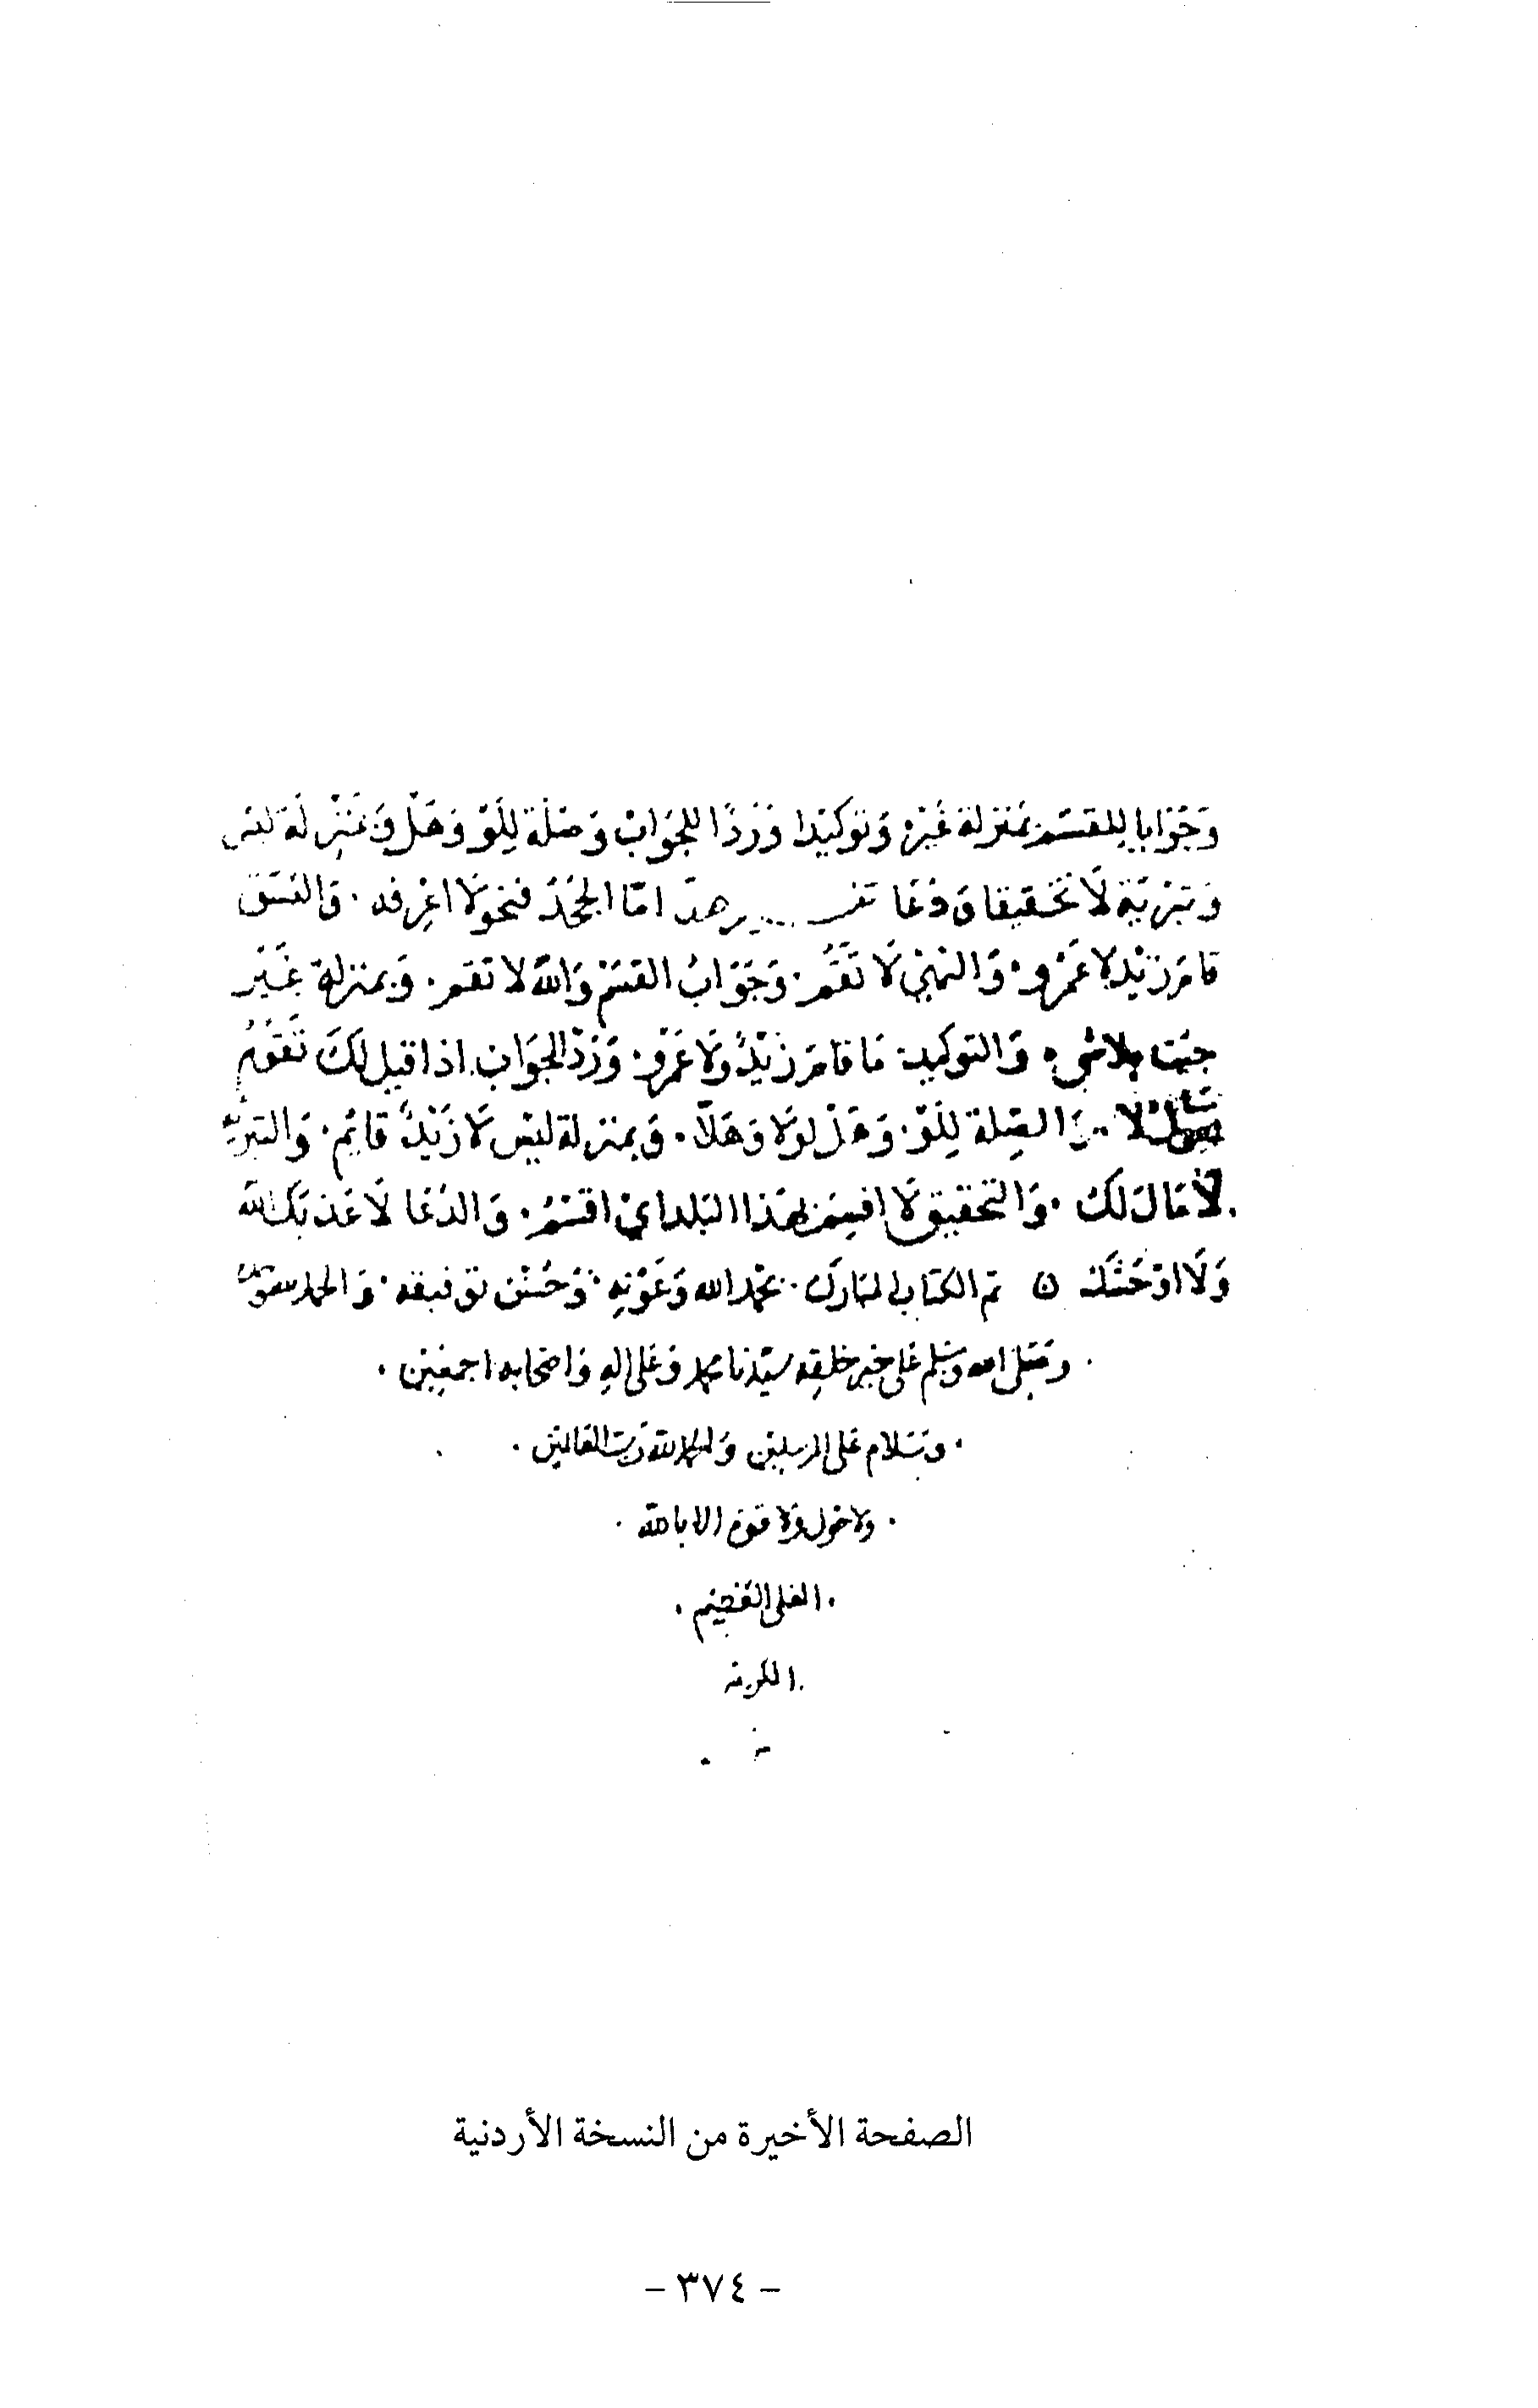 وَجَوَابا لِلقسَم بمَنزلة غَير وَتوكيدا وَرَدًا للجَوَابْ وَصلَة لِلَوْ وَهَلْ وَبمَنْزِلَة لَيْسَ
وَتبْرئة لَا تحَقيقا وَدُعَا امّا الجَحْدُ فنحو لَا اعْرفه . وَالنسَق
قامَ زَيْد لا عَمْرو . وَالنهْيُ لَا تَقُمْ . وَجَوَابُ القسَمْ وَاللَّه لا تقم . وَبمنزلة غَيْر
جيْت بلا شيء وَالتوكيد . مَا قامَ زَيْدٌ وَلَا عَمْرو . وَرَدّ الجَوَابْ اذا قيل لكَ تَقُوْمُ
لا وَالصِلة لِلَوْ . وَهَلْ لولا وَهَلّا . وَبمنزلة ليْس لَا زَيْدٌ قائِم . وَالتبريَة
لا مَالَ لَكَ . وَالتحقيق لَا اقسِمْ بهَذا البَلد ايْ اقسْمُ . وَالدُعَا لَا عَذبَكَ اللَّه
وَلَا اوْحَشَكَ ن تم الكتاب المبَارَك . بحَمْد الله وَعَوْنِهِ . وَحُسْن توفيقه . وَالحمد
. وَصَلى الله وسَلم عَلى خير خلقِه سَيّدنا محمد وَعَلى الهِ وَاصحابه اجمعِيْن .
. وسَلام عَلى المرسلين وَالحمد للهِ رَبّ العَالمين .
. ولا حَول وَلا قوة الا باللّه .
. العَلى العَظيْم .
الصفحة الأخيرة من النسخة الأردنية
- ٣٧٤ -